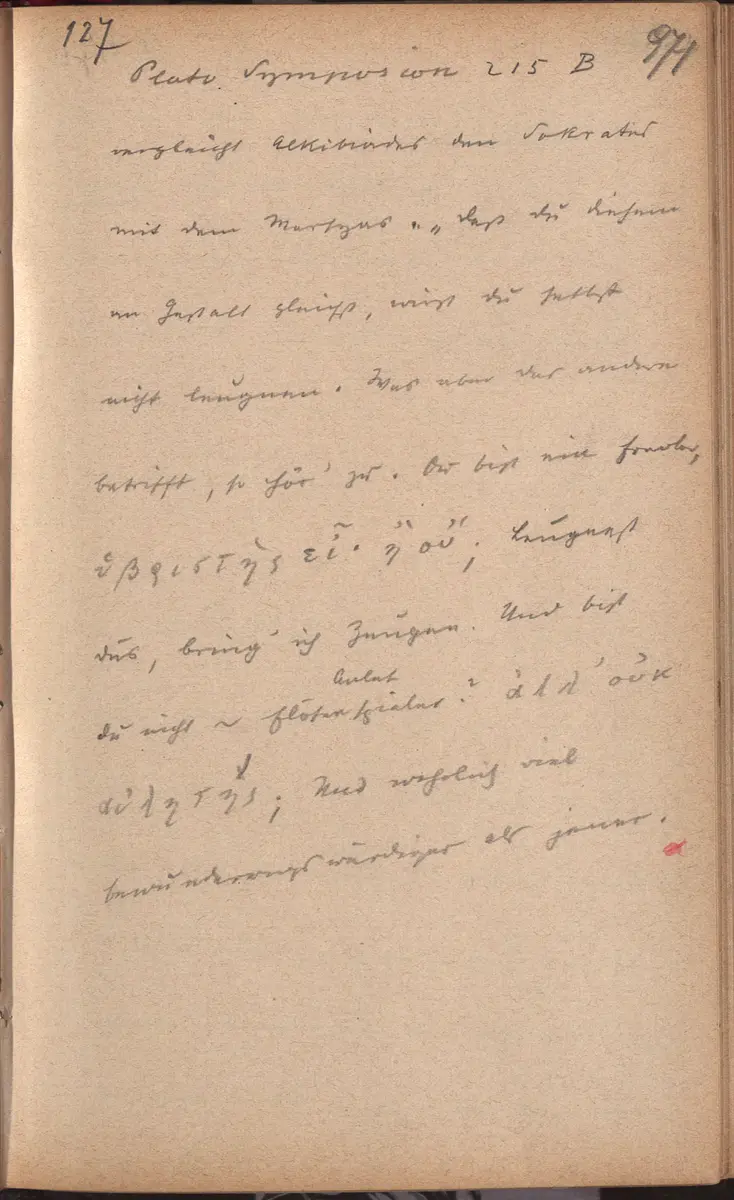 127
971
Plato Symposion 215 B
vergleicht Alkibiades den Sokrates
mit dem Marsyas. „Daß du diesem
an Gestalt gleichst, wirst du selbst
nicht leugnen. Was aber das andere
betrifft, so hör' zu. Du bist ein Frevler,
ὑβριστὴς εἶ· ἢ οὔ; Leugnest
dus, bring' ich Zeugen. Und bist
Aulet
du nicht ~ Flötenspieler? ἀλλ' οὐκ
αὐλητής; Und wahrlich viel
bewunderungswürdiger als jener.